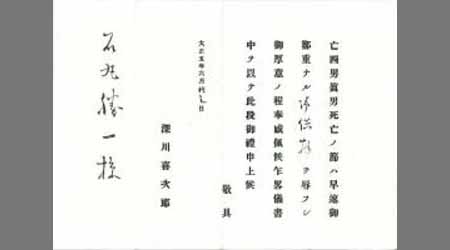 亡四男眞男死亡ノ節ハ早速御
鄭重ナル御供物ヲ辱フシ
御厚意ノ程奉感佩候乍畧儀書
中ヲ以テ此段御禮申上候
敬具
大正五年六月 日
深川喜次郎
石丸勝一様